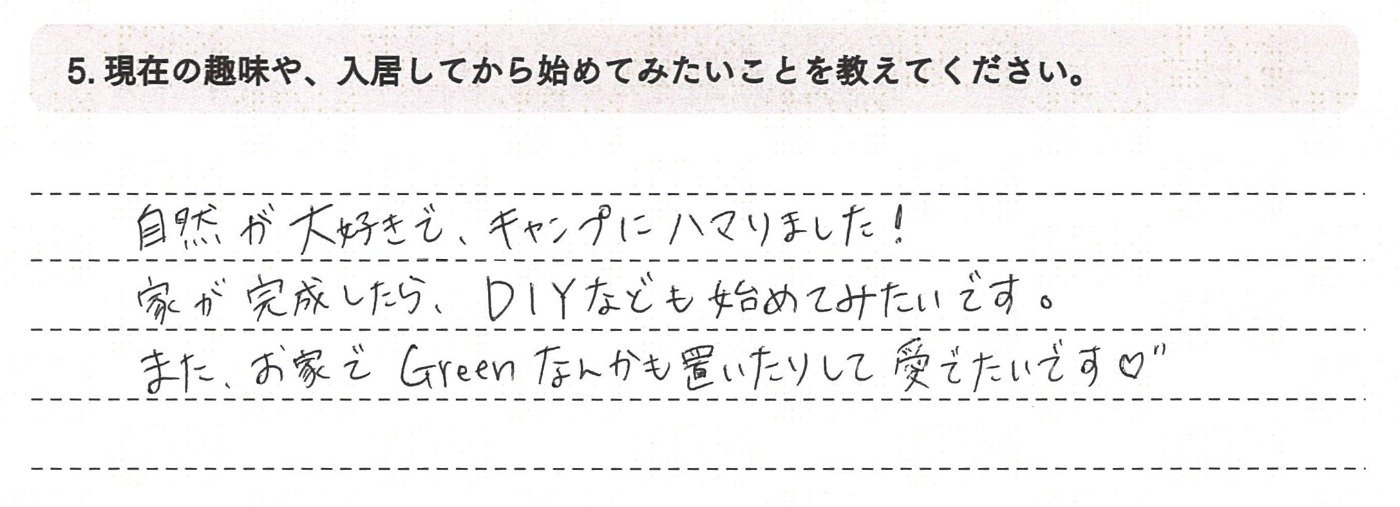 5. 現在の趣味や、入居してから始めてみたいことを教えてください。
自然が大好きで、キャンプにハマりました!
家が完成したら、DIYなども始めてみたいです。
また、お家でGreenなんかも置いたりして愛でたいです♡"